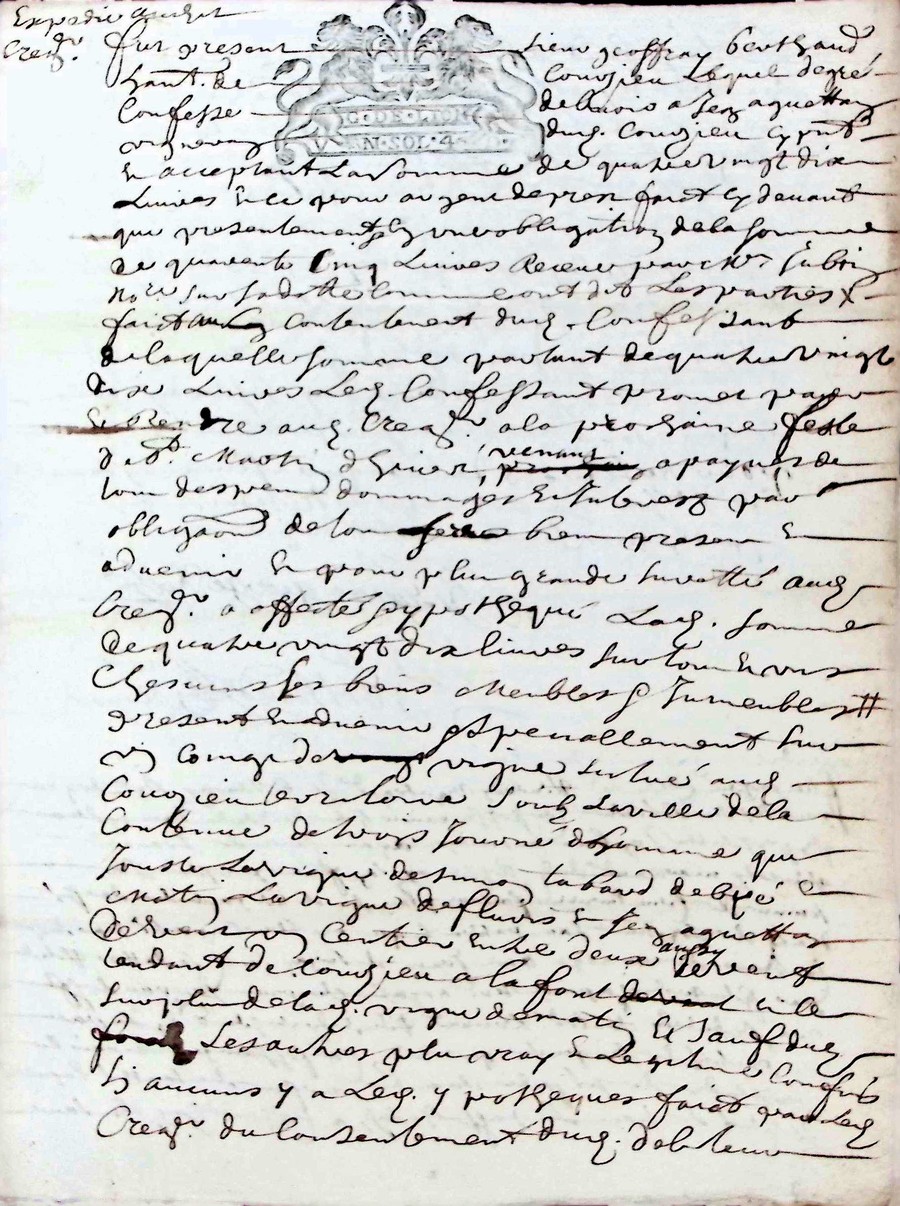 Expedié audit
Crean.r fut present sieur geoffray berthaud
hant. de Couzieu Lequel de gré
Confesse debvoir a Jean aquettan
vigneron dud. Couzieu cy pnt
G.DE.LION
EN.SOL.4
En acceptant La somme de quatre vingt dix
Livres En ce pour argent de prest faict cy devant
que presentement une obligation de la somme
de quarente Cinq Livres Receue par Me
No.re sur sa datte comme ont dit Les parties
faict contentement dud. Confessant
de laquelle somme partant de quatre vingt
dix Livres Led. Confessant promet payer
Et Rendre aud. Crean.r a la prochaine feste
de St. Martin d'hiver venant a paynes de
tous despens dommages Et Interest par
obligaon de tous biens presens En
advenir Et pour plus grande suretté aud
Crean.r a affecté hypothequé Lad. somme
de quatre vingt dix livres sur tous En uns
Chescuns ses biens Meubles & Immeubles
present En advenir & specialement sur
vigne situé aud.
Couzieu terroire soubz La ville de la
Contenue de trois Journé d'homme que
Jouste La vigne de simon tabard de bize
Matin La vigne de fleuris En Jean aquettan
de vent un Centier Entre deux aussy de vent
tendant de Couzieu a la font
sur plus de lad. vigne de matin Et sauf dud
Ses autres plus vray En Legitime Confins
Si aucuns y a Led. ypotheques faict par Led
Crean.r du Consentement dud. debteur